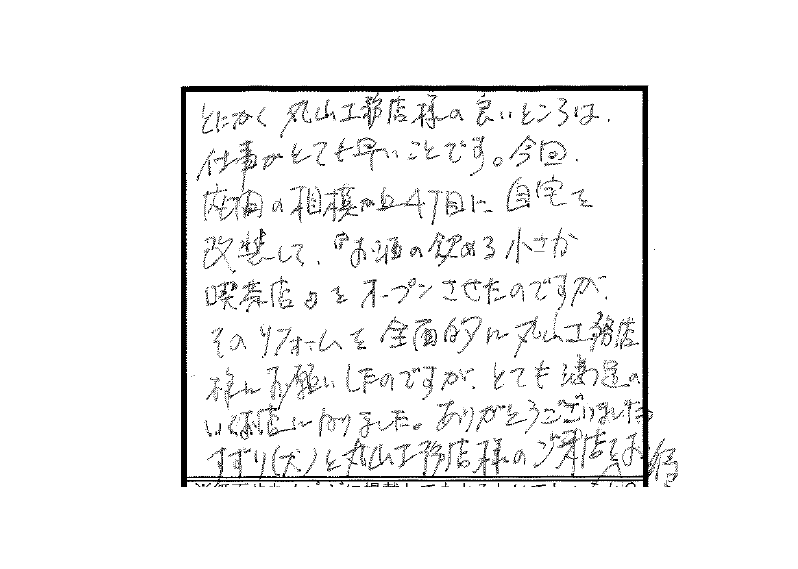 とにかく丸山工務店様の良いところは、
仕事がとても早いことです。今回、
座間の相模が丘4丁目に自宅を
改装して、『お酒の飲める小さな
喫茶店』をオープンさせたのですが、
そのリフォームを全面的に丸山工務店
様にお願いしたのですが、とても満足の
いくお店になりました。ありがとうございました。
すずり(犬)と丸山工務店様のご来店をお
待